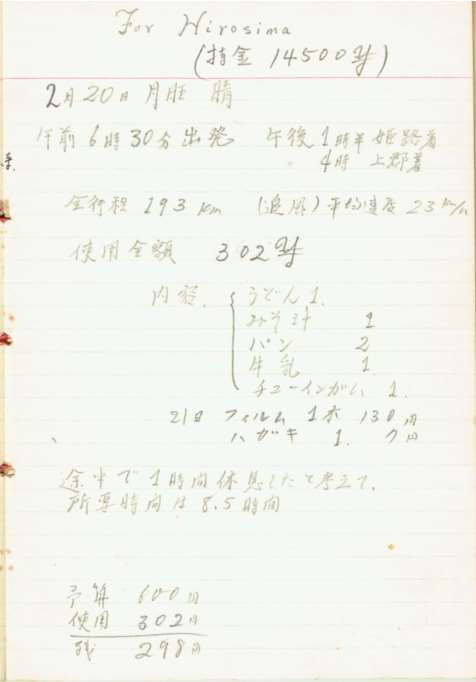 For Hirosima
(持金 14500円)
2月20日 月旺 晴
午前6時30分出発 午後1時半姫路着
4時 上郡着
全行程 193 km (追風)平均速度 23 km/h
使用金額 302円
内訳 うどん 1.
みそ汁 1
パン 2
牛乳 1
チューインガム 1.
21日 フィルム 1本 130円
ハガキ 1. 7円
途中で1時間休息したと考えて、
所要時間は8.5時間
予算 600円
使用 302円
残 298円